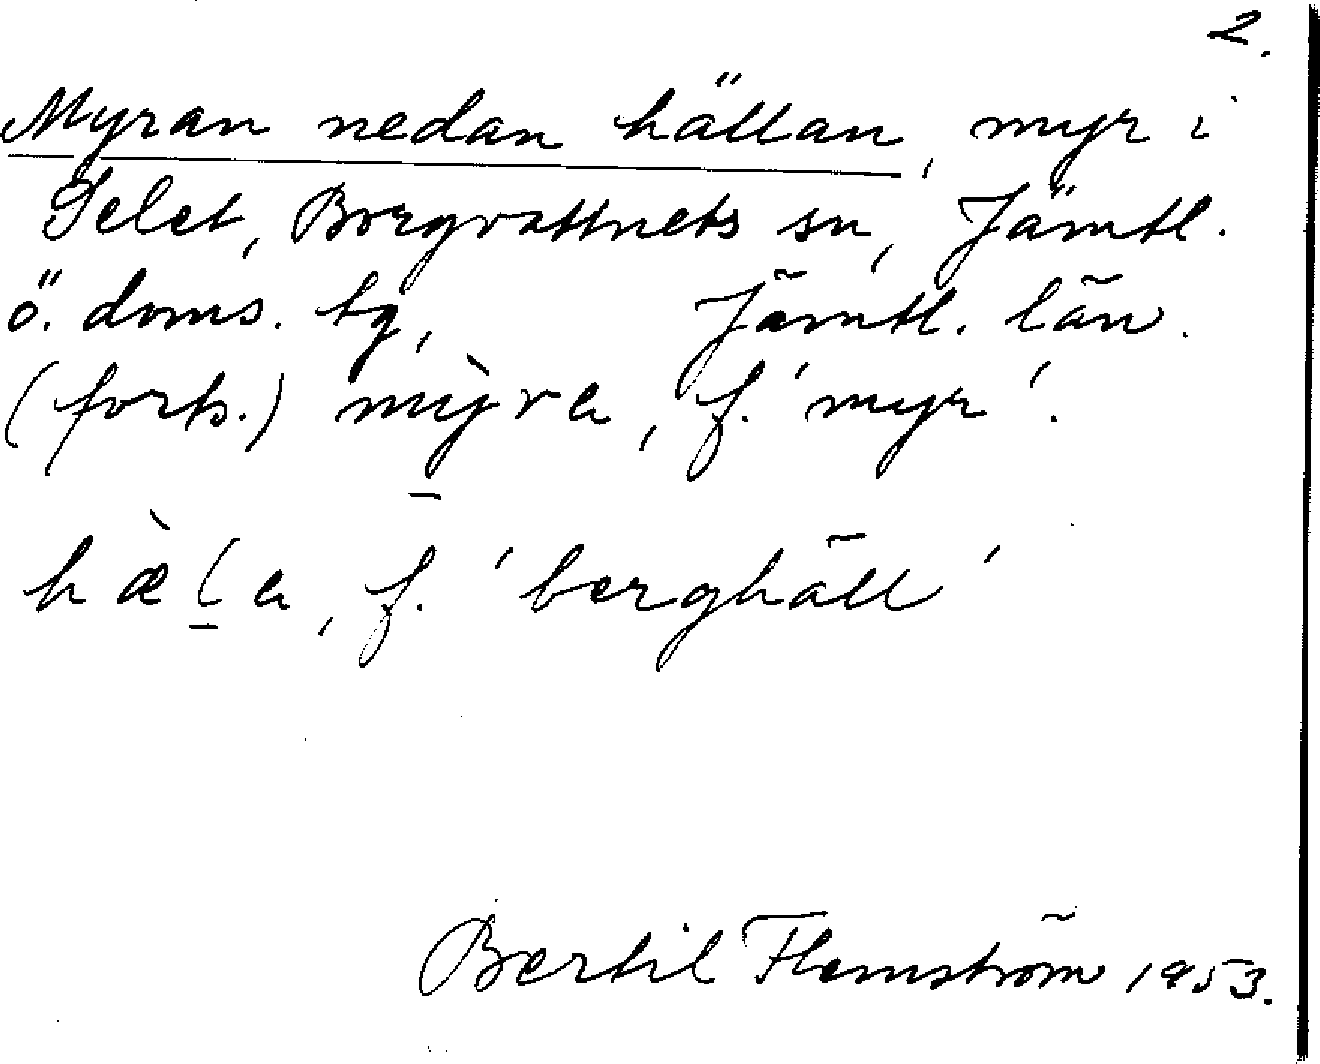 2.
Myran nedan hällan, myr i
Selet, Borgvattnets sn, Jämtl.
ö. doms. tg, Jämtl. län.
(forts.) mỳ̱ra, f. 'myr'.
hæ̀ḻa, f. 'berghäll'
Bertil Flemström 1953.